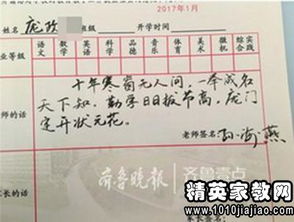 2017年1月
姓名 庞孜 班级 开学时间
业等级 语文 数学 英语 科学 品德 音乐 体育 美术 微机 综合实践
十年寒窗无人问，一举成名
师的话 天下知。勤学日日报节高，庞门
定开状元花。
老师签名 孙海燕
齐鲁晚报 齐鲁壹点
家长的话
精英家教网
www.1010jiajiao.com